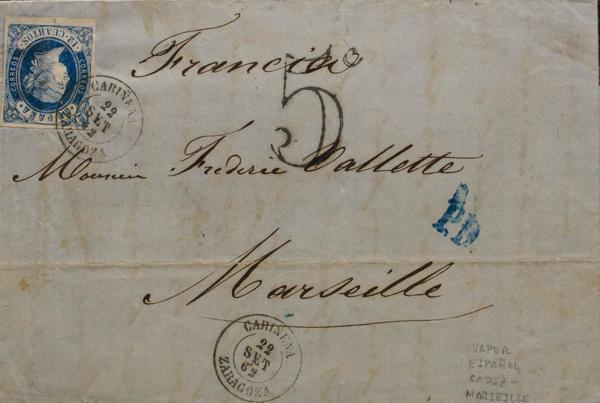 12 CUARTOS
CORREOS
CORREOS
ESPAÑA
CARIÑENA
22
SET
62
ZARAGOZA
Francia
5
Monsieur Frederic Vallette
PD
Marseille
CARIÑENA
22
SET
62
ZARAGOZA
VAPOR
ESPAÑOL
CADIZ-
MARSEILLE